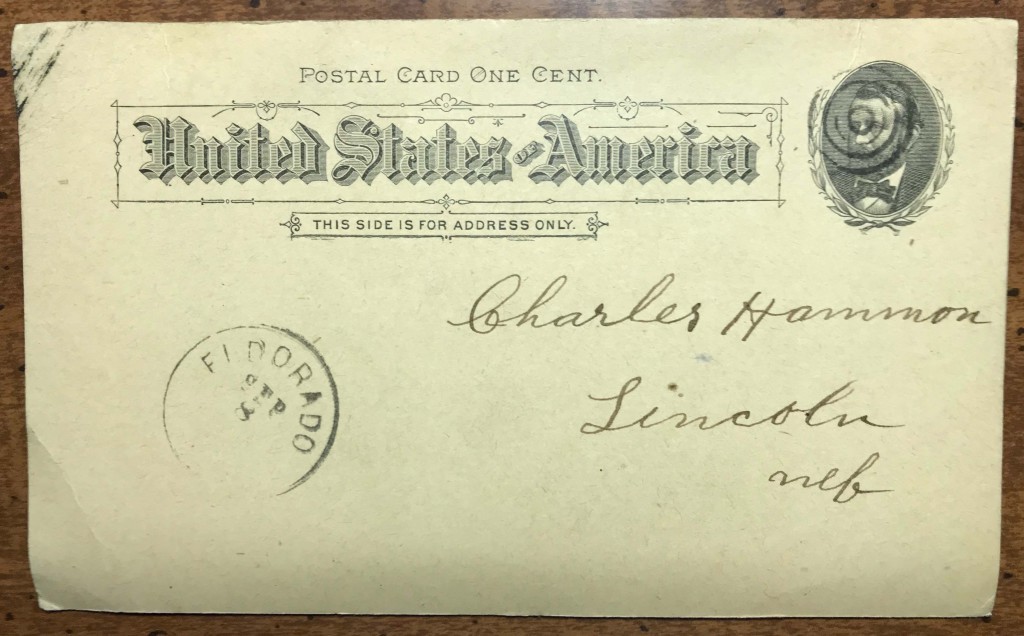 POSTAL CARD ONE CENT.
United States OF America
THIS SIDE IS FOR ADDRESS ONLY.
Charles Hammon
Lincoln
neb
ELDORADO
SEP
8